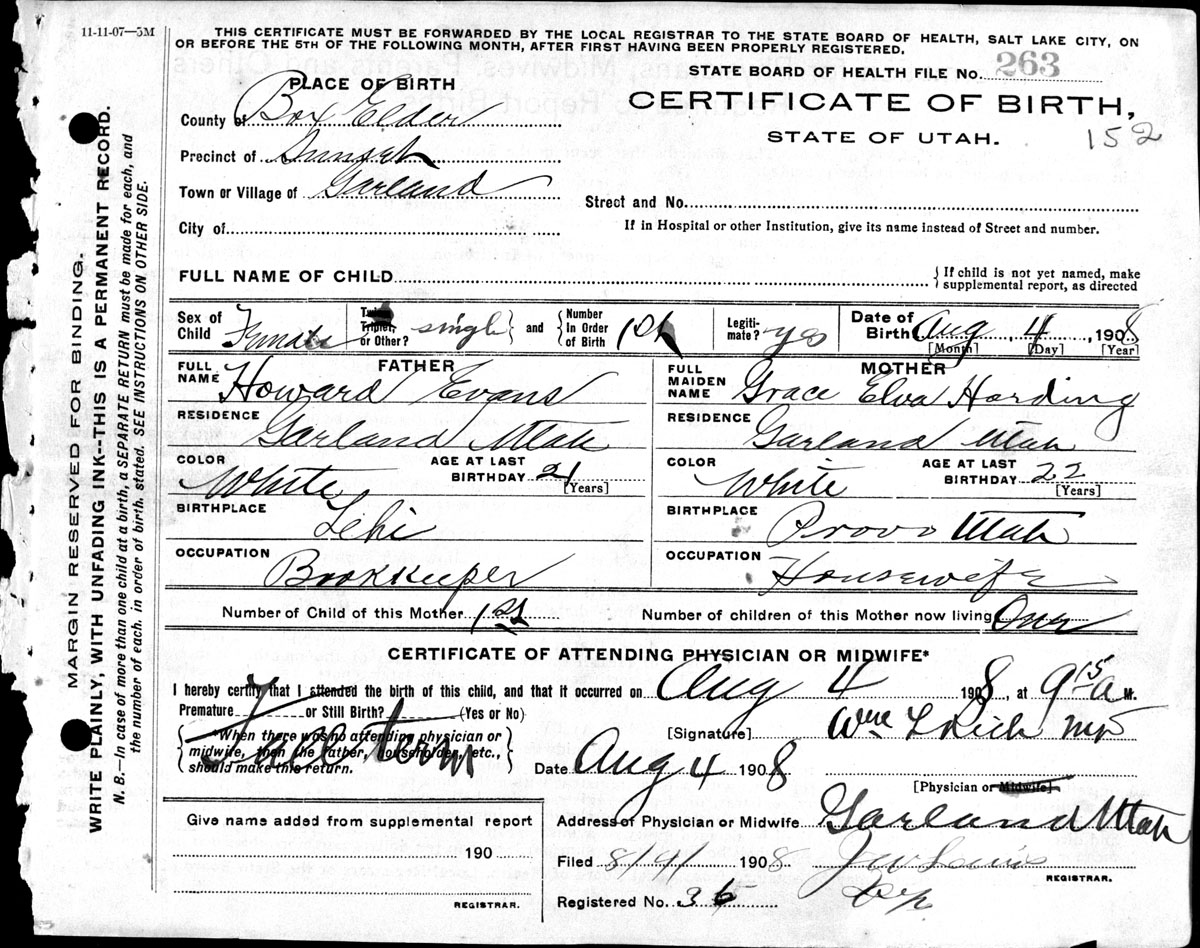 11-11-07—5M
THIS CERTIFICATE MUST BE FORWARDED BY THE LOCAL REGISTRAR TO THE STATE BOARD OF HEALTH, SALT LAKE CITY, ON
OR BEFORE THE 5TH OF THE FOLLOWING MONTH, AFTER FIRST HAVING BEEN PROPERLY REGISTERED.
STATE BOARD OF HEALTH FILE No. 263
PLACE OF BIRTH
CERTIFICATE OF BIRTH,
STATE OF UTAH.
152
County of Box Elder
Precinct of Sunset
Town or Village of Garland
Street and No.
City of
If in Hospital or other Institution, give its name instead of Street and number.
FULL NAME OF CHILD
If child is not yet named, make
supplemental report, as directed
Sex of Child Female
Twin, Triplet, or Other? single and Number In Order of Birth 1st
Legitimate? yes
Date of Birth Aug 4, 1908
[Month] [Day] [Year]
FATHER
FULL NAME Howard Evans
RESIDENCE Garland Utah
COLOR White
AGE AT LAST BIRTHDAY 21 [Years]
BIRTHPLACE Lehi
OCCUPATION Bookkeeper
MOTHER
FULL MAIDEN NAME Grace Elva Harding
RESIDENCE Garland Utah
COLOR White
AGE AT LAST BIRTHDAY 22 [Years]
BIRTHPLACE Provo Utah
OCCUPATION Housewife
Number of Child of this Mother 1st
Number of children of this Mother now living One
CERTIFICATE OF ATTENDING PHYSICIAN OR MIDWIFE*
I hereby certify that I attended the birth of this child, and that it occurred on Aug 4 1908, at 9 15 a M.
Premature or Still Birth? (Yes or No)
Full term
*When there was no attending physician or
midwife, then the father, householder, etc.,
should make this return.
[Signature] Wm L Rich MD
Date Aug 4 1908
[Physician or Midwife]
Give name added from supplemental report
190
REGISTRAR.
Address of Physician or Midwife Garland Utah
Filed 1908
REGISTRAR.
Dep
Registered No. 36
MARGIN RESERVED FOR BINDING.
WRITE PLAINLY, WITH UNFADING INK--THIS IS A PERMANENT RECORD.
N. B.—In case of more than one child at a birth, a SEPARATE RETURN must be made for each, and
the number of each, in order of birth, stated. SEE INSTRUCTIONS ON OTHER SIDE.